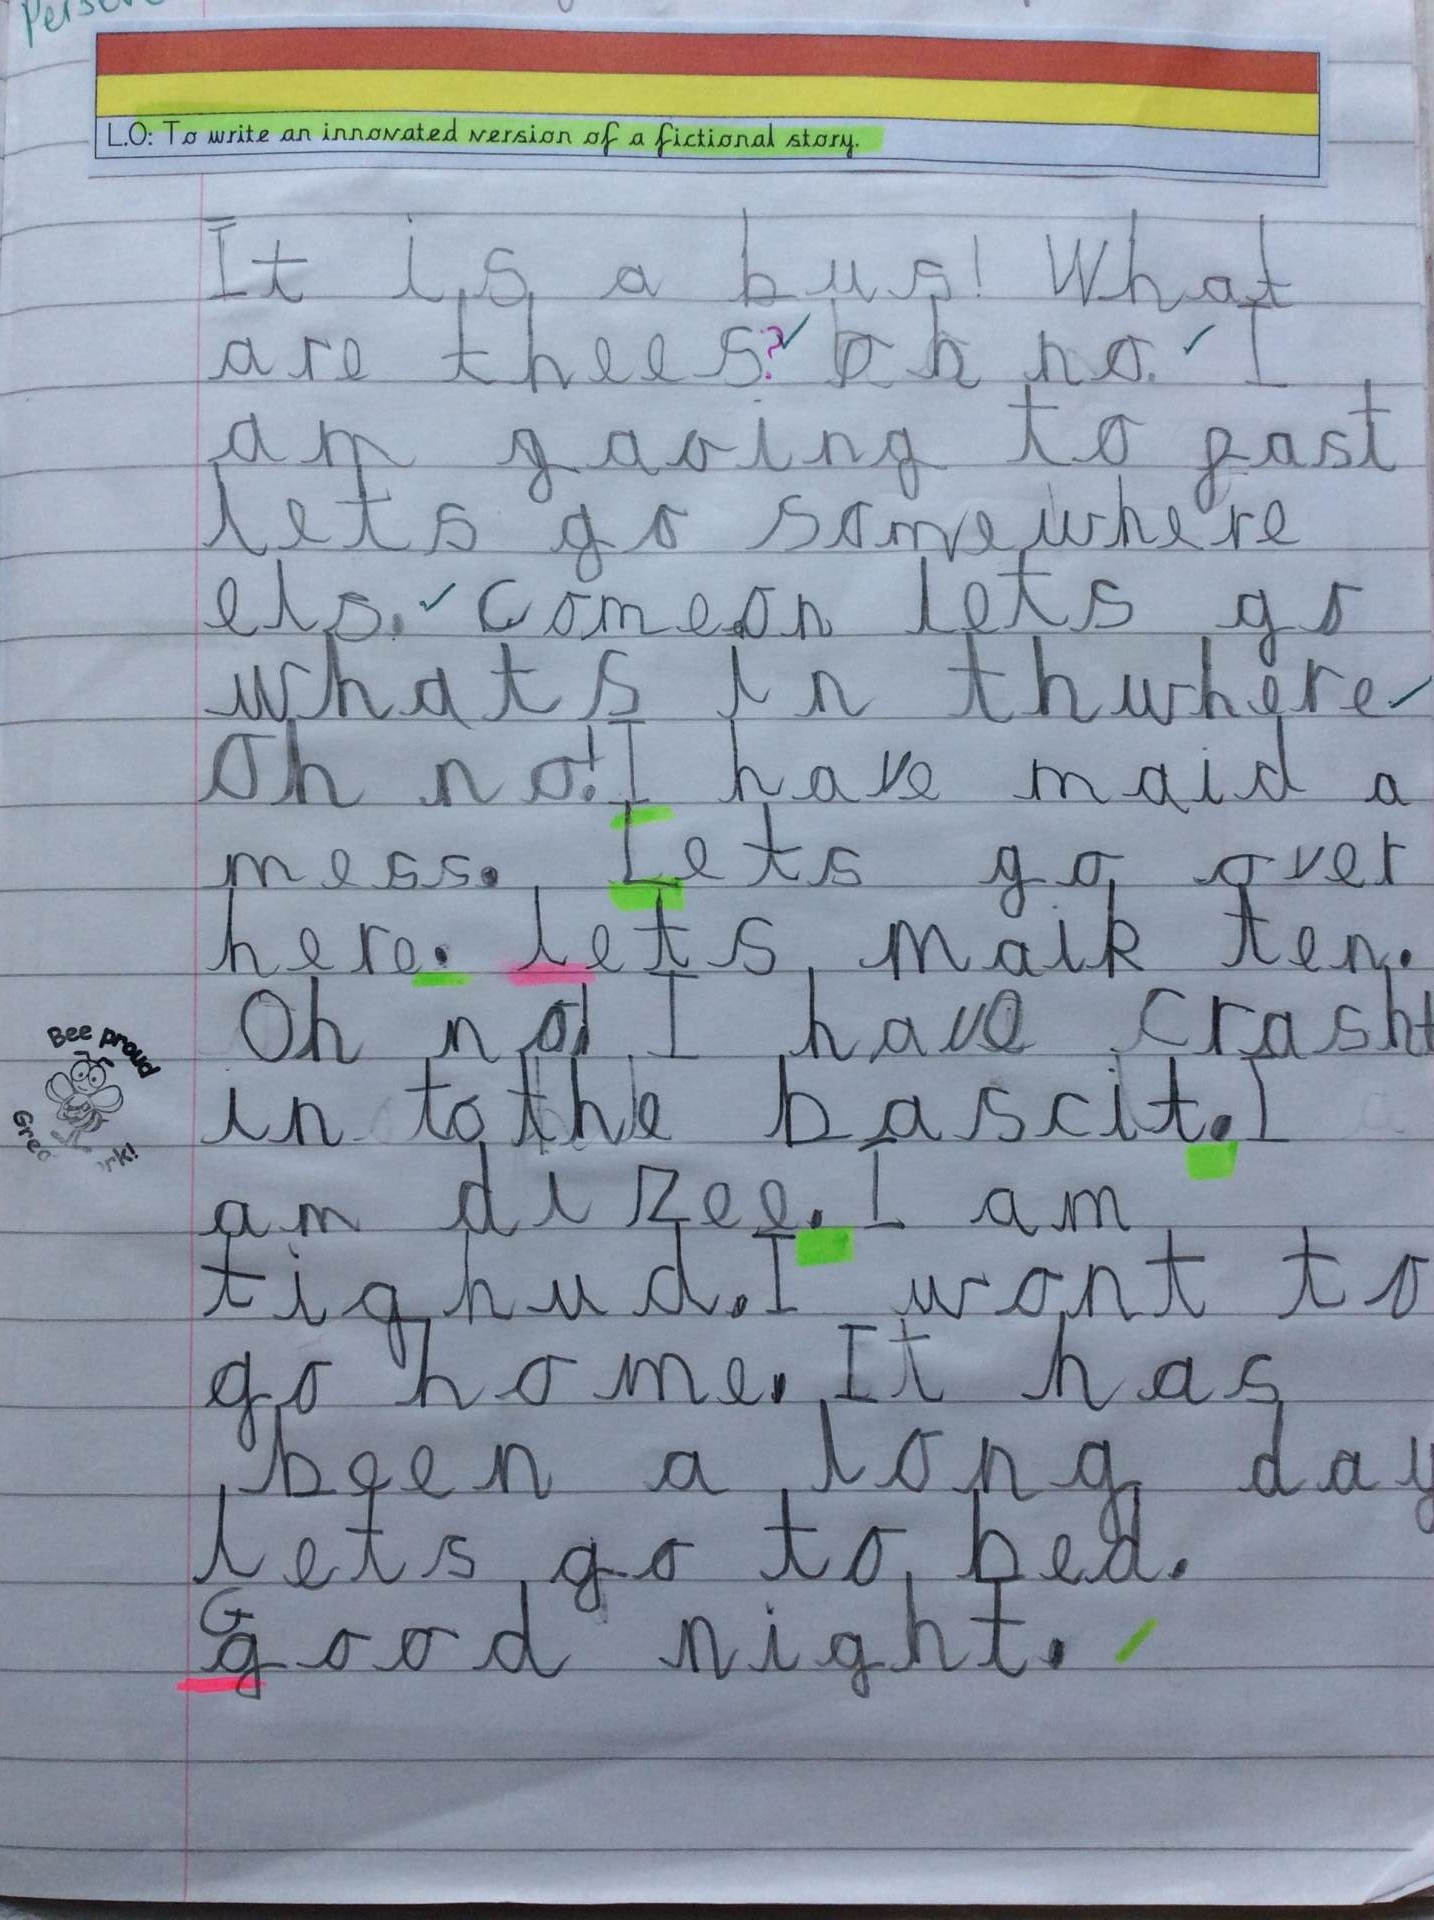 L.O: To write an innovated version of a fictional story.
It is a bus! What
are thees? oh no. I
am gaoing to past
lets go somewhere
els. Comeon lets go
whats in thwhere
Oh no! I have maid a
mess. Lets go over
here. lets maik ten.
Oh no! I have crasht
in to the bascit. I
am dizee. I am
tighud. I wont to
go home. It has
been a long day
lets go to bed.
Good night.
Bee proud